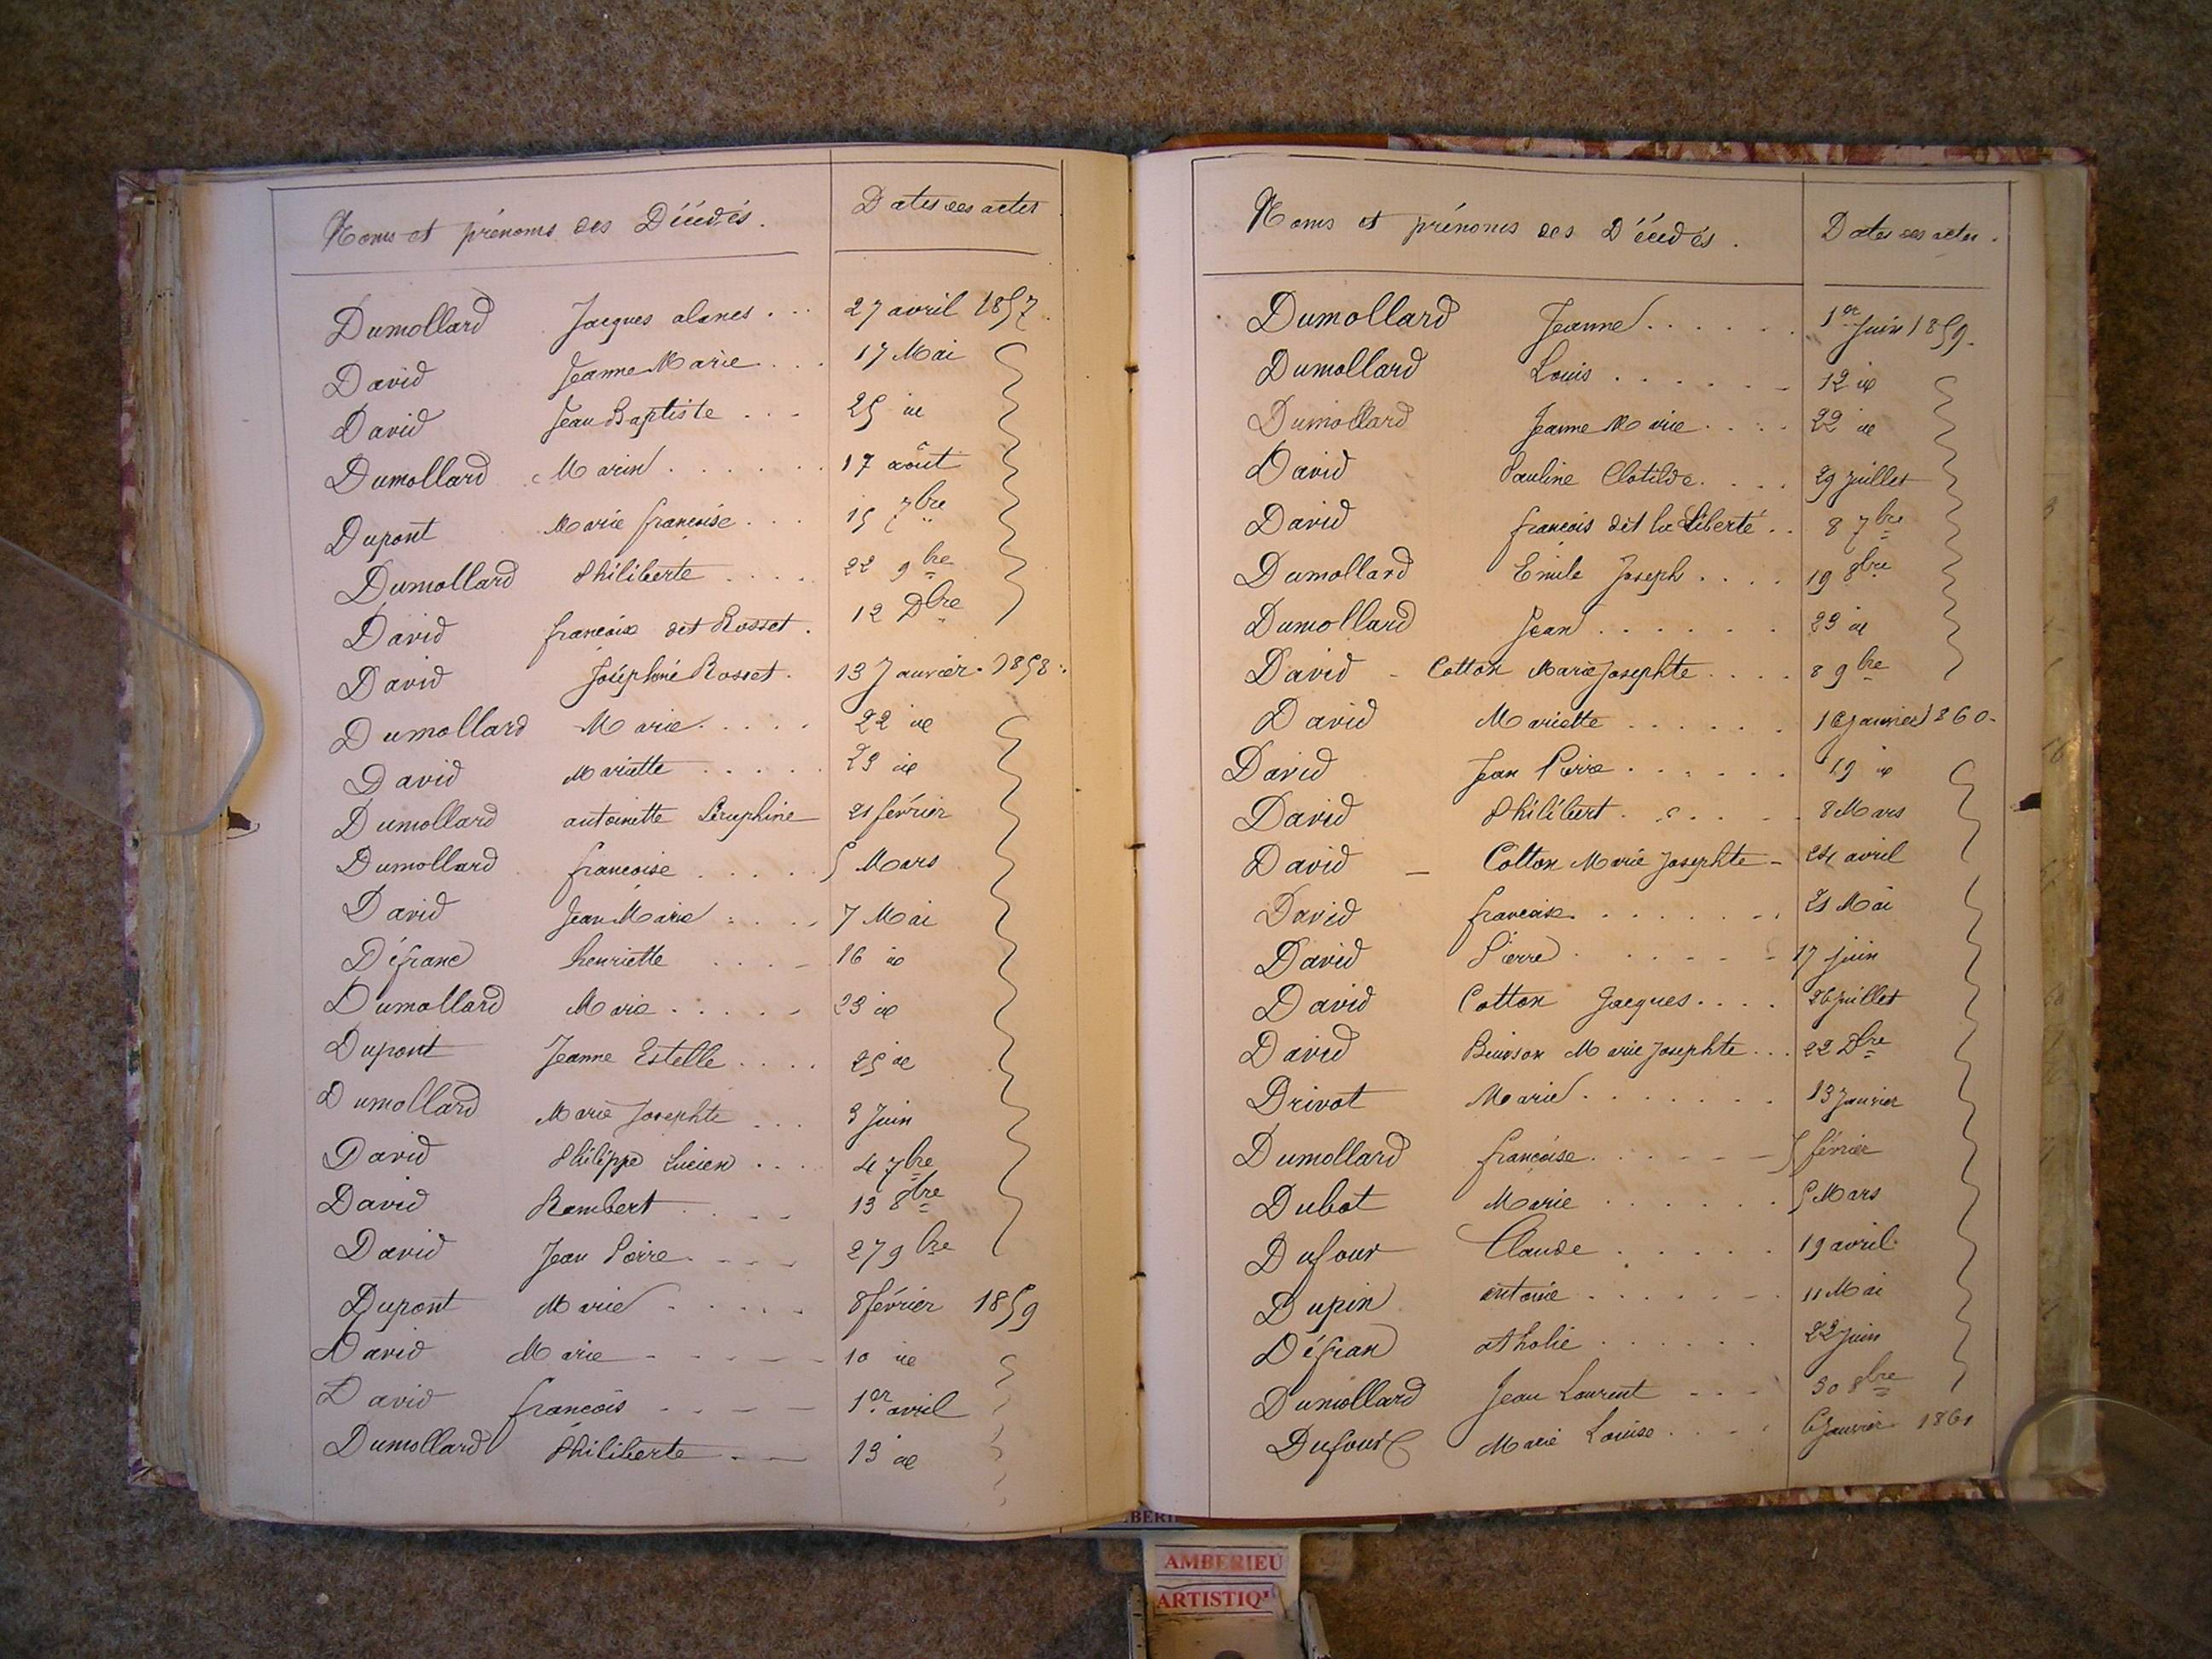 Noms et prénoms des Décédés. Dates des actes
Dumollard Jacques alones . . . 27 avril 1857.
David Jeanne Marie . . . 17 Mai
David Jean Baptiste . . . 25 id
Dumollard Marin . . . . . . 17 août
Dupont Marie françoise . . . 15 7bre
Dumollard Philiberte . . . . 22 9bre
David françois dit Rosset . 12 Dbre
David Joséphine Rosset . 13 Janvier . 1858
Dumollard Marie . . . . . 22 id
David Mariette . . . . . 23 id
Dumollard antoinette Séraphine 21 février
Dumollard françoise . . . . . 5 Mars
David Jean Marie . . . . 7 Mai
Défranc henriette . . . . 16 id
Dumollard Marie . . . . . 23 id
Dupont Jeanne Estelle . . . . 25 id
Dumollard Marie Josephte . . . 3 Juin
David Philippe Lucien . . . . 4 7bre
David Rambert . . . . 13 8bre
David Jean Pierre . . . . 27 9bre
Dupont Marie . . . . . 8 février 1859
David Marie - - - - - 10 id
David françois - - - - 1er avril
Dumollard Philiberte - - 13 id
Noms et prénoms des Décédés . Dates des actes .
Dumollard Jeanne . . . . . . 1er Juin 1859.
Dumollard Louis . . . . . . 12 id
Dumollard Jeanne Marie . . . . 22 id
David Pauline Clotilde . . . . 29 juillet
David françois dit la Liberté . . 8 7bre
Dumollard Emile Joseph . . . . 19 8bre
Dumollard Jean . . . . . . 23 id
David - Cotton Marie Josephte . . . . 8 9bre
David Mariette . . . . . . 16 janvier 1860-
David Jean Pierre . . . . . . 19 id
David Philibert . . . . . 8 Mars
David - Cotton Marie Josephte - 24 avril
David . . . . . . . 21 Mai
David Pierre . . . . . . 17 juin
David Cotton Jacques . . . . 26 juillet
David Marie Josephte . . . 22 Dbre
Drivot Marie . . . . . . . 13 Janvier
Dumollard françoise . . . . . . 5 février
Dubot Marie . . . . . . 5 Mars
Dufour Claude . . . . . 19 avril
Dupin antoine . . . . . . . 11 Mai
Défran atholie . . . . . . 22 Juin
Dumollard Jean Laurent - - - 30 8bre
Dufour Marie Louise . . . . 6 Janvier 1861
AMBERIEU
ARTISTIQ